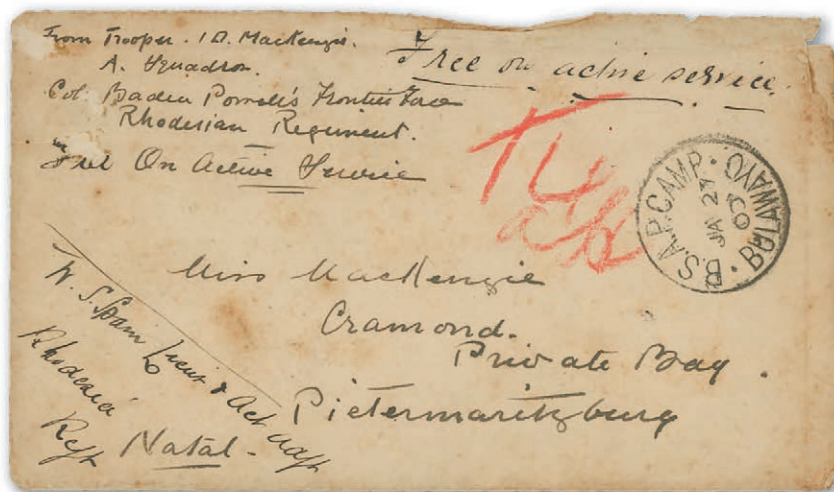 From Trooper. D. MacKenzie.
A. Squadron.
Col. Baden Powell's Frontier Force
Rhodesian Regiment.
On Active Service
Free on active service.
B.S.A.P. CAMP. BULAWAYO
JA 27
00
Miss MacKenzie
Cramond.
Private Bag.
Pietermaritzburg
Natal.
W. S. Spain Lieut & Act Adjt
Rhodesia
Regt